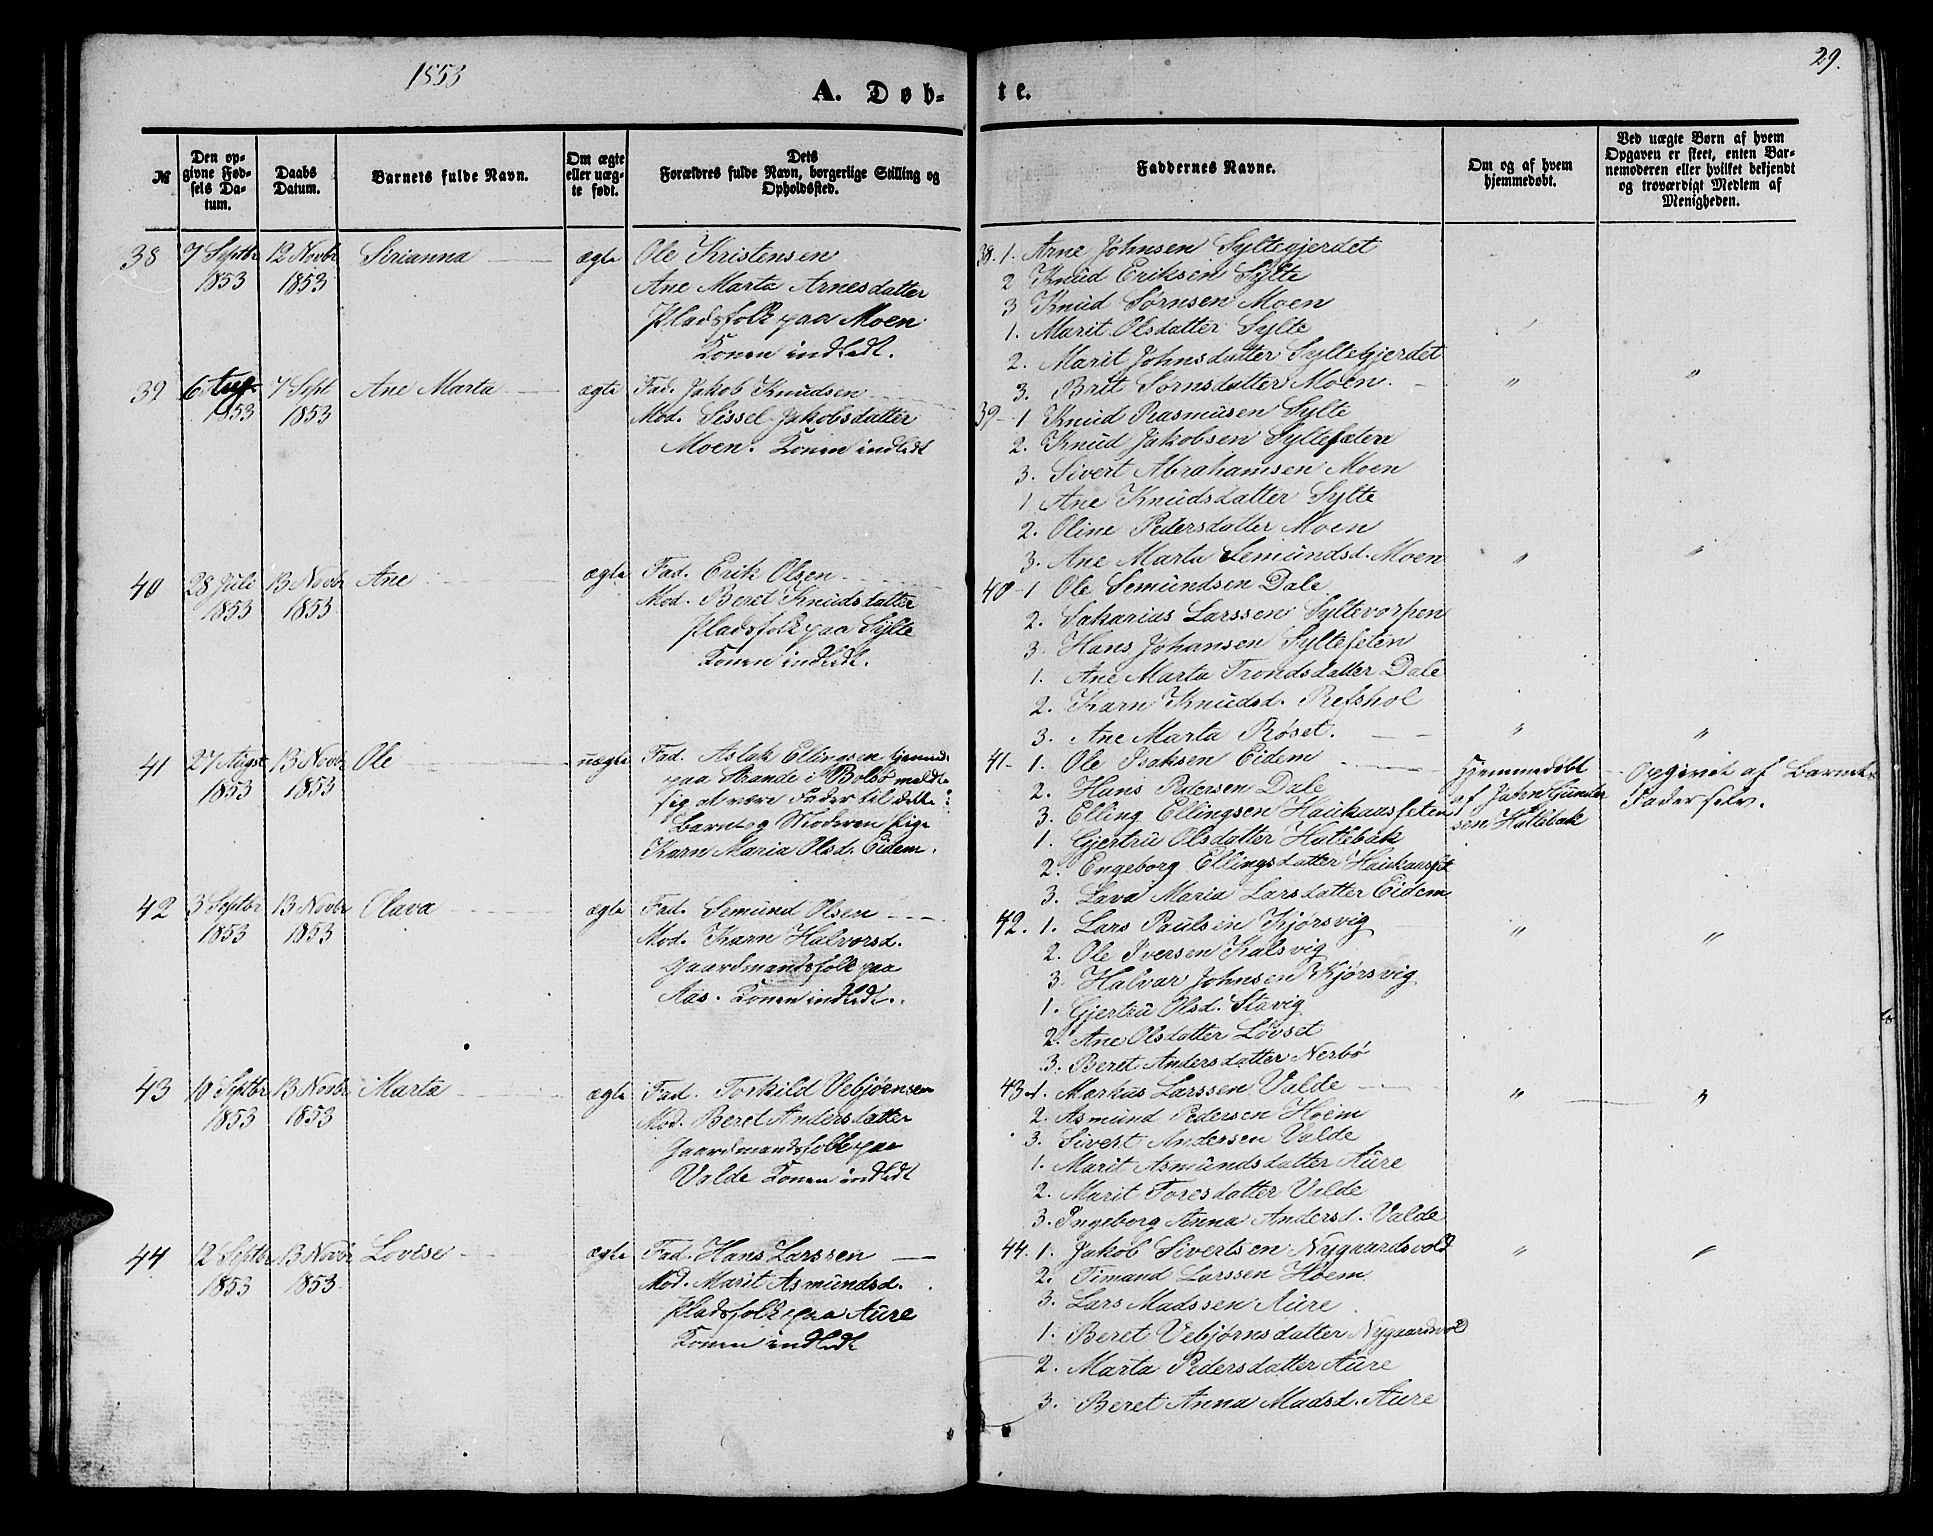 1853
29.
A. Døb-
te.
№
Den op-
givne Fød-
sels Da-
tum.
Daabs
Datum.
Barnets fulde Navn.
Om ægte
eller uæg-
te født.
Dets
Forældres fulde Navn, borgerlige Stilling og
Opholdssted.
Faddernes Navne.
Om og af hvem
hjemmedøbt.
Ved uægte Børn af hvem
Opgaven er skeet, enten Bar-
nemoderen eller hvilket bekjendt
og troværdigt Medlem af
Menigheden.
38 7 Septbr 12 Novbr Sirianna ægte Ole Kristensen
1853 1853 Ane Marta Arnesdatter
Pladsfolk paa Moen
Konen indledt.
38. 1. Arne Johnsen Syltegjerdet
2 Knud Eriksen Sylte
3 Knud Sørnsen Moen
1. Marit Olsdatter Sylte
2. Marit Johnsdatter Syltegjerdet
3. Brit Sørnsdatter Moen. " "
39 6 Aug. 7 Sept Ane Marta ægte Fad. Jakob Knudsen
1853 1853 Mod. Sissel Jakobsdatter
Moen. Konen indledt
39 - 1 Knud Rasmusen Sylte
2. Knud Jakobsen Syltesæten
3. Sivert Abrahamsen Moen
1 Ane Knudsdatter Sylte
2. Oline Pedersdatter Moen
3. Ane Marta Semundsd. Moen " "
40 28 Juli 13 Novbr Ane ægte Fad. Erik Olsen
1853 1853 Mod. Beret Knudsdatter
Pladsfolk paa Sylte
Konen indledt.
40 - 1 Ole Semundsen Dale
2. Sakarias Larssen Syltevorpen
3. Hans Johansen Sylteseten
1. Ane Marta Trondsdatter Dale
2. Karn Knudsd. Refshol
3. Ane Marta Røset. " "
41 27 Augst 13 Novbr Ole uægte Fad. Aslak Ellingsen
1853 1853 paa Strande i Bolsø meldte
sig at være Fader til dette
Barn og Moderen Pige
Karn Maria Olsd. Eidem.
41 - 1. Ole Isaksen Eidem
2. Hans Petersen Dale
3. Elling Ellingsen Haukaasseten
1. Gjertru Olsdatter Hatlebak
2. Engeborg Ellingsdatter Haukaasset
3. Lava Maria Larsdatter Eidem
Hjemmedøbt
af John Gunder
sen Hatlebak
Opgivet af Barnets
Fader selv.
42 3 Septbr 13 Novbr Olava ægte Fad. Semund Olsen
1853 1853 Mod. Karn Halvorsd.
Gaardmandsfolk paa
Aas. Konen indledt.
42. 1. Lars Paulsen Kjørsvig " "
2. Ole Iversen Kalsvig
3. Halvar Johnsen Kjørsvig
1. Gjertru Olsd. Stavig
2. Ane Olsdatter Løvset
3. Beret Andersdatter Nerbø
43 10 Septbr 13 Novbr Marta ægte Fad. Torkild Vebjørnsen
1853 1853 Mod. Beret Andersdatter
Gaardmandsfolk paa
Valde Konen indledt
43 1. Markus Larssen Valde " "
2. Asmund Pedersen Hoem
3. Sivert Andersen Valde
1. Marit Asmundsdatter Aure
2. Marit Toresdatter Valde
3. Ingeborg Anna Andersd. Valde
44 12 Septbr 13 Novbr Lovise ægte Fad. Hans Larssen
1853 1853 Mod. Marit Asmundsd.
Pladsfolk paa Aure
Konen indledt
44. 1. Jakob Sivertsen Nygaardsvold " "
2. Timand Larssen Hoem
3. Lars Madssen Aure
1. Beret Vebjørnsdatter Nygaardsvold
2. Marta Pedersdatter Aure
3. Beret Anna Madsd. Aure